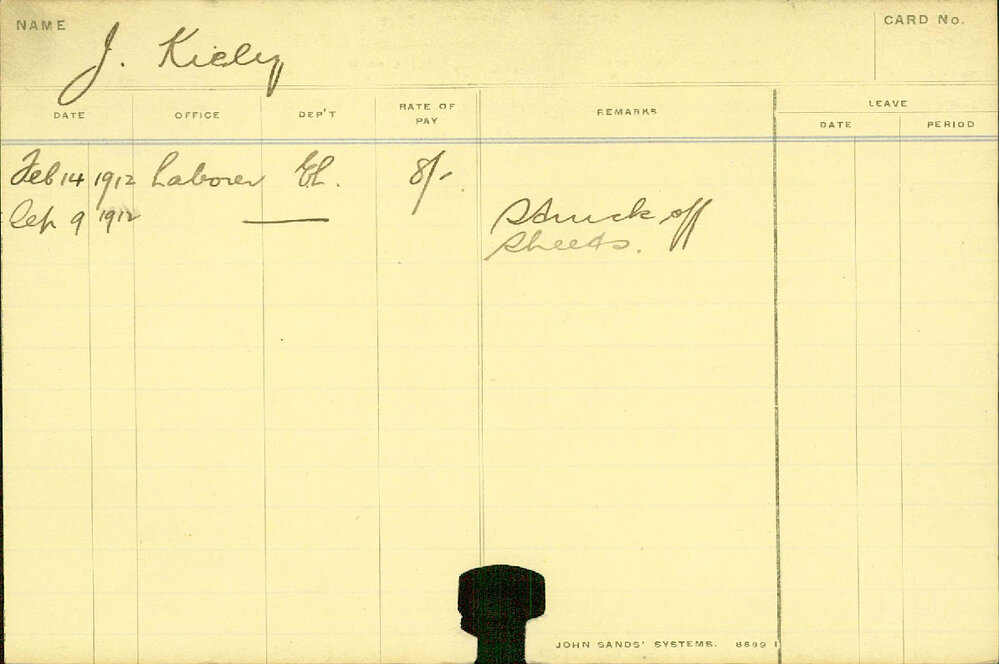 NAME J. Kiely CARD No.
DATE OFFICE DEP'T RATE OF PAY REMARKS LEAVE
DATE PERIOD
Feb 14 1912 Laborer El. 8/-
Sep 9 1912 — Struck off
Sheets.
JOHN SANDS' SYSTEMS. 8699